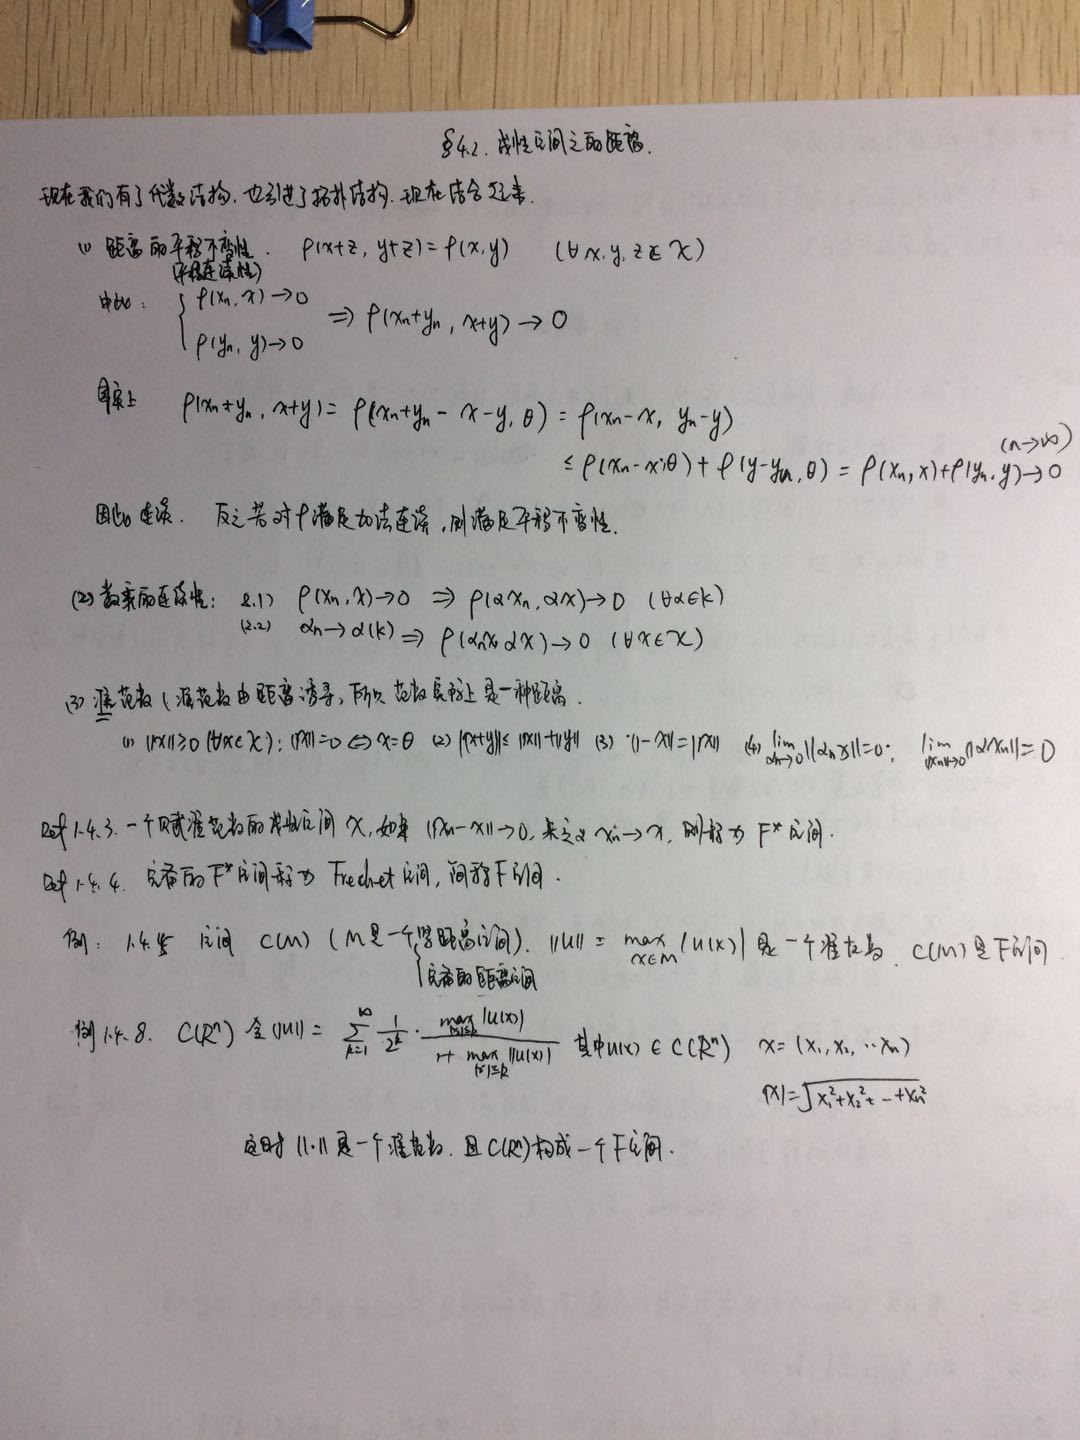 §4.2. 线性空间之的距离.
现在我们有了代数结构, 也引进了拓扑结构. 现在结合起来.
(1) 距离的平移不变性. ρ(x+z, y+z) = ρ(x,y) (∀x, y, z ∈ X)
(平移连续性)
由此: { ρ(xn, x)→0 ρ(yn, y)→0 ⇒ ρ(xn+yn, x+y) → 0
事实上 ρ(xn+yn, x+y) = ρ(xn+yn - x-y, θ) = ρ(xn-x, yn-y)
≤ ρ(xn-x, θ) + ρ(y-yn, θ) = ρ(xn, x)+ρ(yn, y)→0 (n→∞)
因此连续. 反之若对ρ满足加法连续, 则满足平移不变性.
(2) 数乘的连续性: 2.1) ρ(xn, x)→0 ⇒ ρ(αxn, αx)→0 (∀α∈K)
(2.2) αn→α(K) ⇒ ρ(αnx, αx)→0 (∀x∈X)
(3) 准范数 (准范数由距离诱导, 所以范数实际上是一种距离.
(1) ||x||≥0 (∀x∈X); ||x||=0 ⇔ x=θ (2) ||x+y||≤||x||+||y|| (3) ||-x||=||x|| (4) lim αn→0 ||αnx||=0; lim ||xn||→0 ||αxn||=0
Def 1.4.3. 一个赋准范数的线性空间X, 如果 ||xn-x||→0, 来定义 xn→x, 则称为 F* 空间.
Def 1.4.4. 完备的 F* 空间称为 Frechet 空间, 简称F空间.
例: 1.4.5 空间 C(M) (M是一个紧距离空间). ||u|| = max x∈M |u(x)| 是一个准范数. C(M)是F空间.
完备的距离空间
例1.4.8. C(Rⁿ) 令||u|| = ∑ k=1 ∞ 1/2ᵏ · max |x|≤k |u(x)| / 1+ max |x|≤k ||u(x)| 其中u(x) ∈ C(Rⁿ) x = (x₁, x₂, ··· xn)
|x| = √x₁²+x₂²+ -- +xn²
这时 ||·|| 是一个准范数. 且 C(Rⁿ)构成一个F空间.